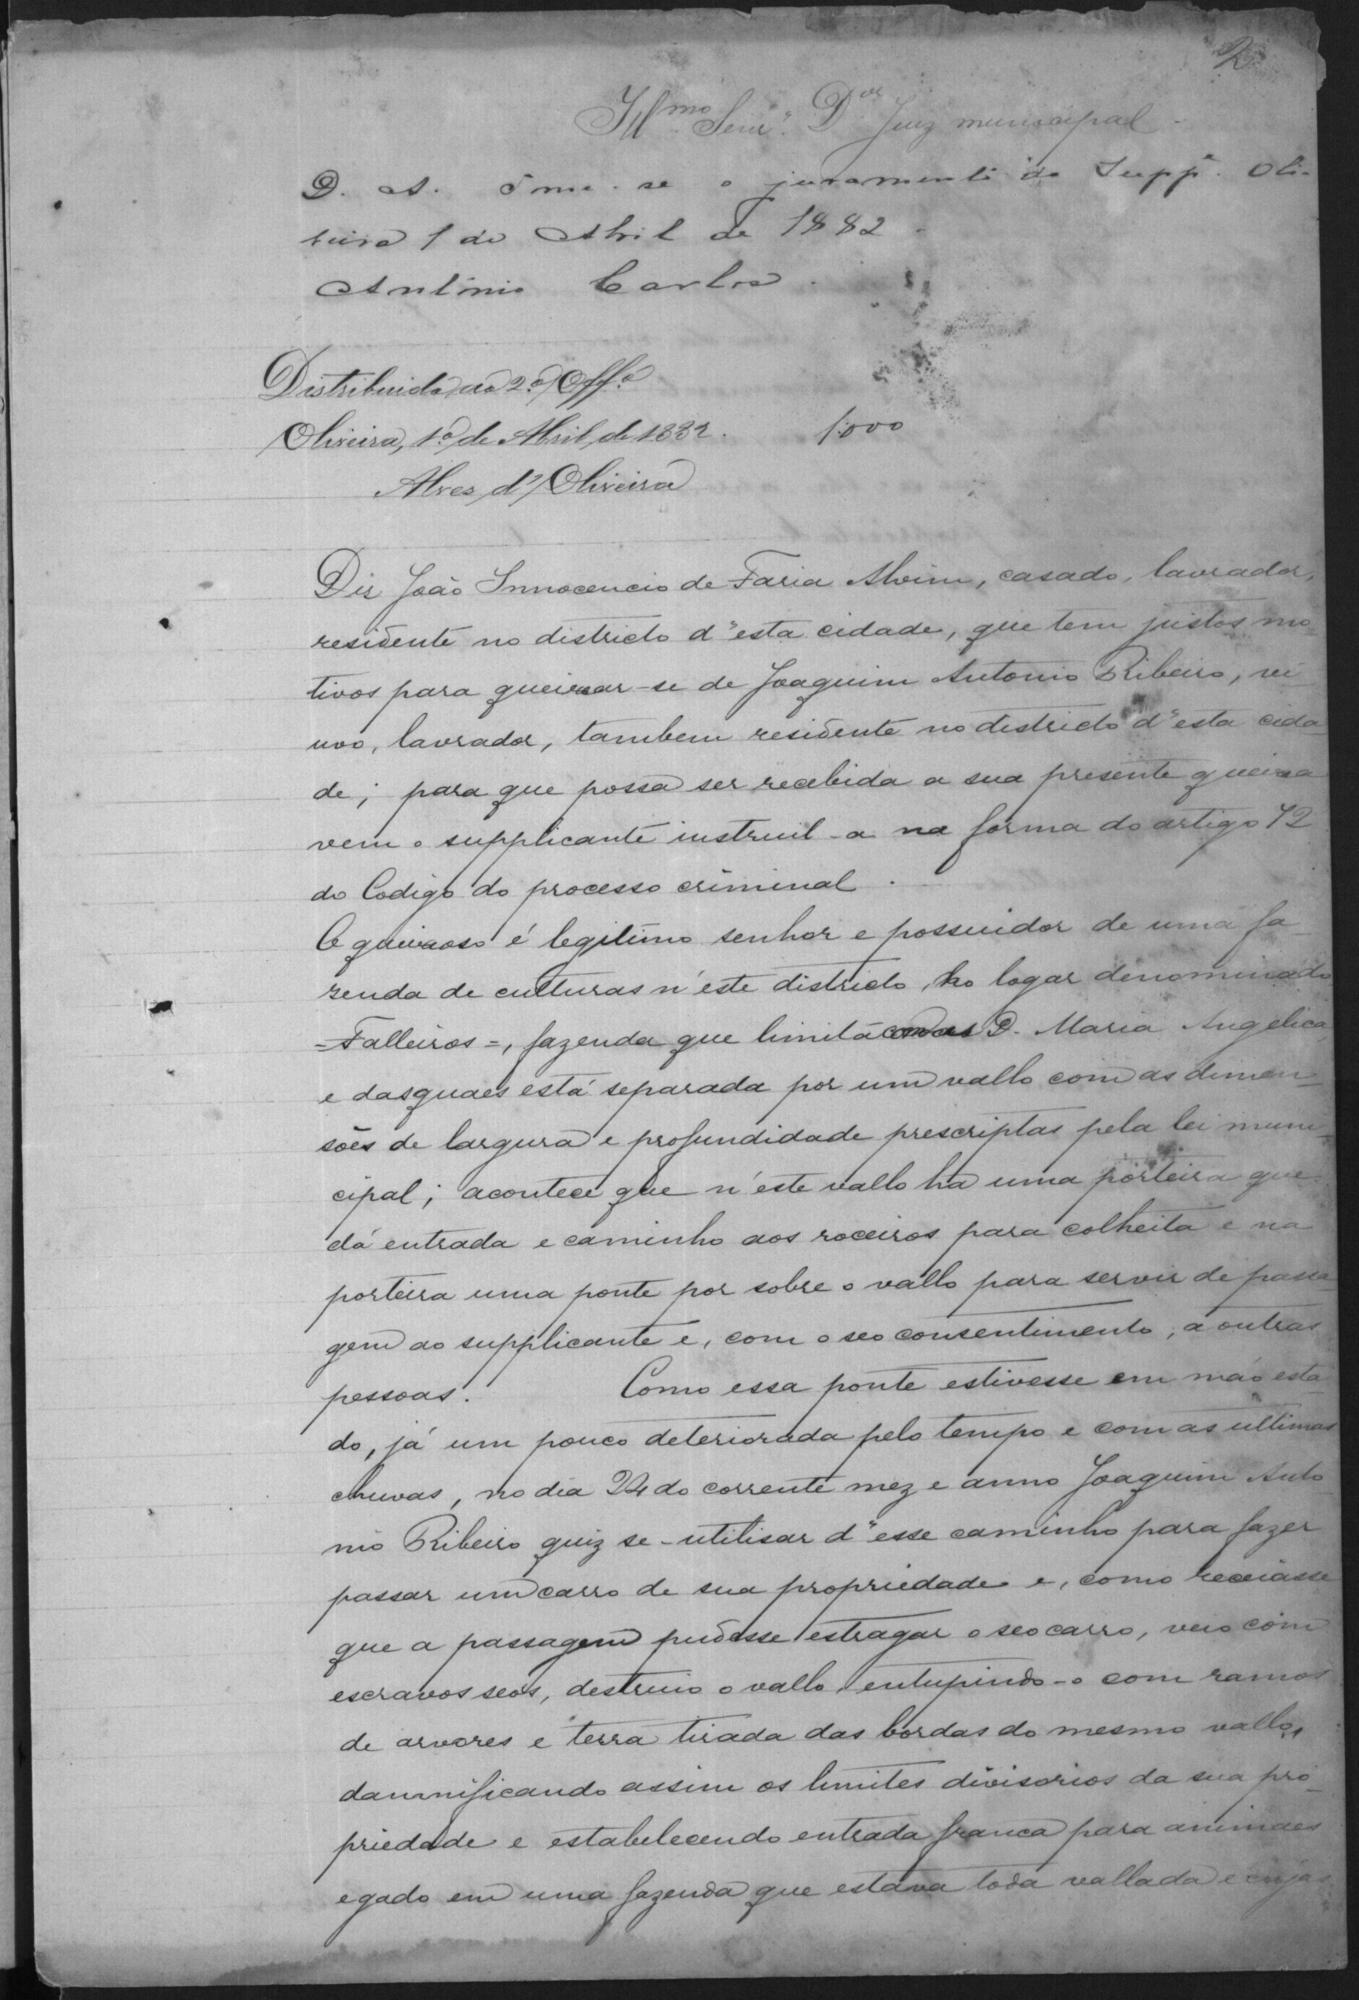 2
Illmo Senr. Dor Juiz municipal
D. A. Tome-se o juramento do Suppe. Oli-
veira 1 de Abril de 1882.
Antonio Carlos
Distribuido ao 2º Offº
Oliveira, 1º de Abril de 1882. 1:000
Alves d'Oliveira
Dis João Innocencio de Faria Alvim, casado, lavrador,
residente no districto d'esta cidade, que tem justos mo-
tivos para queixar-se de Joaquim Antonio Ribeiro, vi-
uvo, lavrador, tambem residente no districto d'esta cida-
de; para que possa ser recebida a sua presente queixa
vem o supplicante instruil-a na forma do artigo 72
do Codigo do processo criminal.
O queixoso é legitimo senhor e possuidor de uma fa-
zenda de culturas n'este districto, no logar denominado
=Falleiros=, fazenda que limita D. Maria Angelica,
e das quaes está separada por um vallo com as dimen-
sões de largura e profundidade prescriptas pela lei muni-
cipal; acontece que n'este vallo ha uma porteira que
dá entrada e caminho aos roceiros para colheita e na
porteira uma ponte por sobre o vallo para servir de passa
gem ao supplicante e, com o seo consentimento, a outras
pessoas. Como essa ponte estivesse em máo esta
do, já um pouco deteriorada pelo tempo e com as ultimas
chuvas, no dia 24 do corrente mez e anno Joaquim Anto
nio Ribeiro quiz se-utilisar d'esse caminho para fazer
passar um carro de sua propriedade e, como receiasse
que a passagem pudesse estragar o seo carro, veio com
escravos seos, destruio o vallo, entupindo-o com ramos
de arvores e terra tirada das bordas do mesmo vallo,
damnificando assim os limites divisorios da sua pro-
priedade e estabelecendo entrada franca para animaes
e gado em uma fazenda que estava toda vallada e cujas